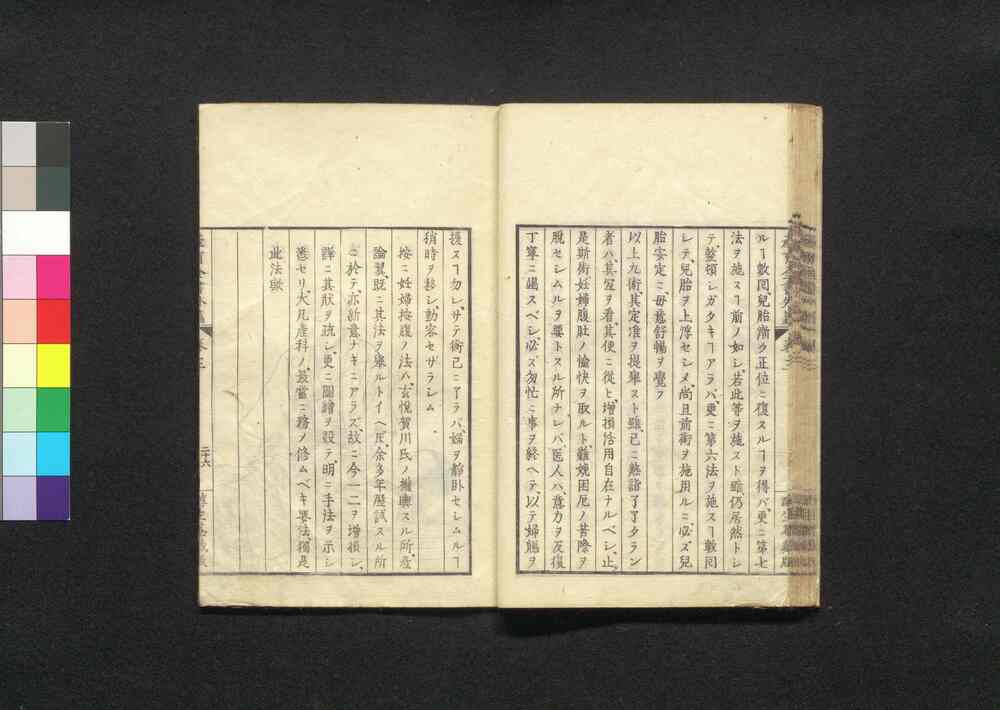 ルヿ數囘兒胎漸ク正位ニ復スルヿヲ得バ、更ニ第七
法ヲ施スヿ前ノ如シ、若此等ヲ施スト雖仍居然トシ
テ整頓シガタキヿアラバ、更ニ第六法ヲ施スヿ數囘
シテ、兒胎ヲ上浮セシメ、尚且前術ヲ施用ルニ必ズ兒
胎安定ニ、毋意舒暢ヲ覺フ
以上九術其定准ヲ提擧スト雖、已ニ熟諳了了タラン
者ハ、其冝ヲ看、其便ニ從ヒ、增損活用自在ナルベシ、止
是斯術、妊婦腹肚ノ愉快ヲ取ルト、難娩困厄ノ苦際ヲ
脫セシムルヲ要トスル所ナレバ、医人ハ、意力ヲ反復
丁寧ニ竭スベシ、必ズ匆忙ニ事ヲ終ヘテ、以テ婦軀ヲ
擾スヿ勿レ、サテ術已ニ了ラバ、婦ヲ靜卧セシムルヿ
稍時ヲ移シ、動容セザラシム
按ニ妊婦按腹ノ法ハ、玄悅賀川氏ノ權輿スル所、產
論翼、既ニ其法ヲ擧ルトイヘ𪜈、余多年歷試スル所
ニ於テ、亦新意ナキニアラズ、故ニ今一二ヲ增損シ、
詳ニ其狀ヲ疏シ、更ニ圖繪ヲ設テ、明ニ手法ヲ示シ
悉セリ、大凡產科ノ、最當ニ務メ修ムベキ要法、獨是
此法歟
二十六